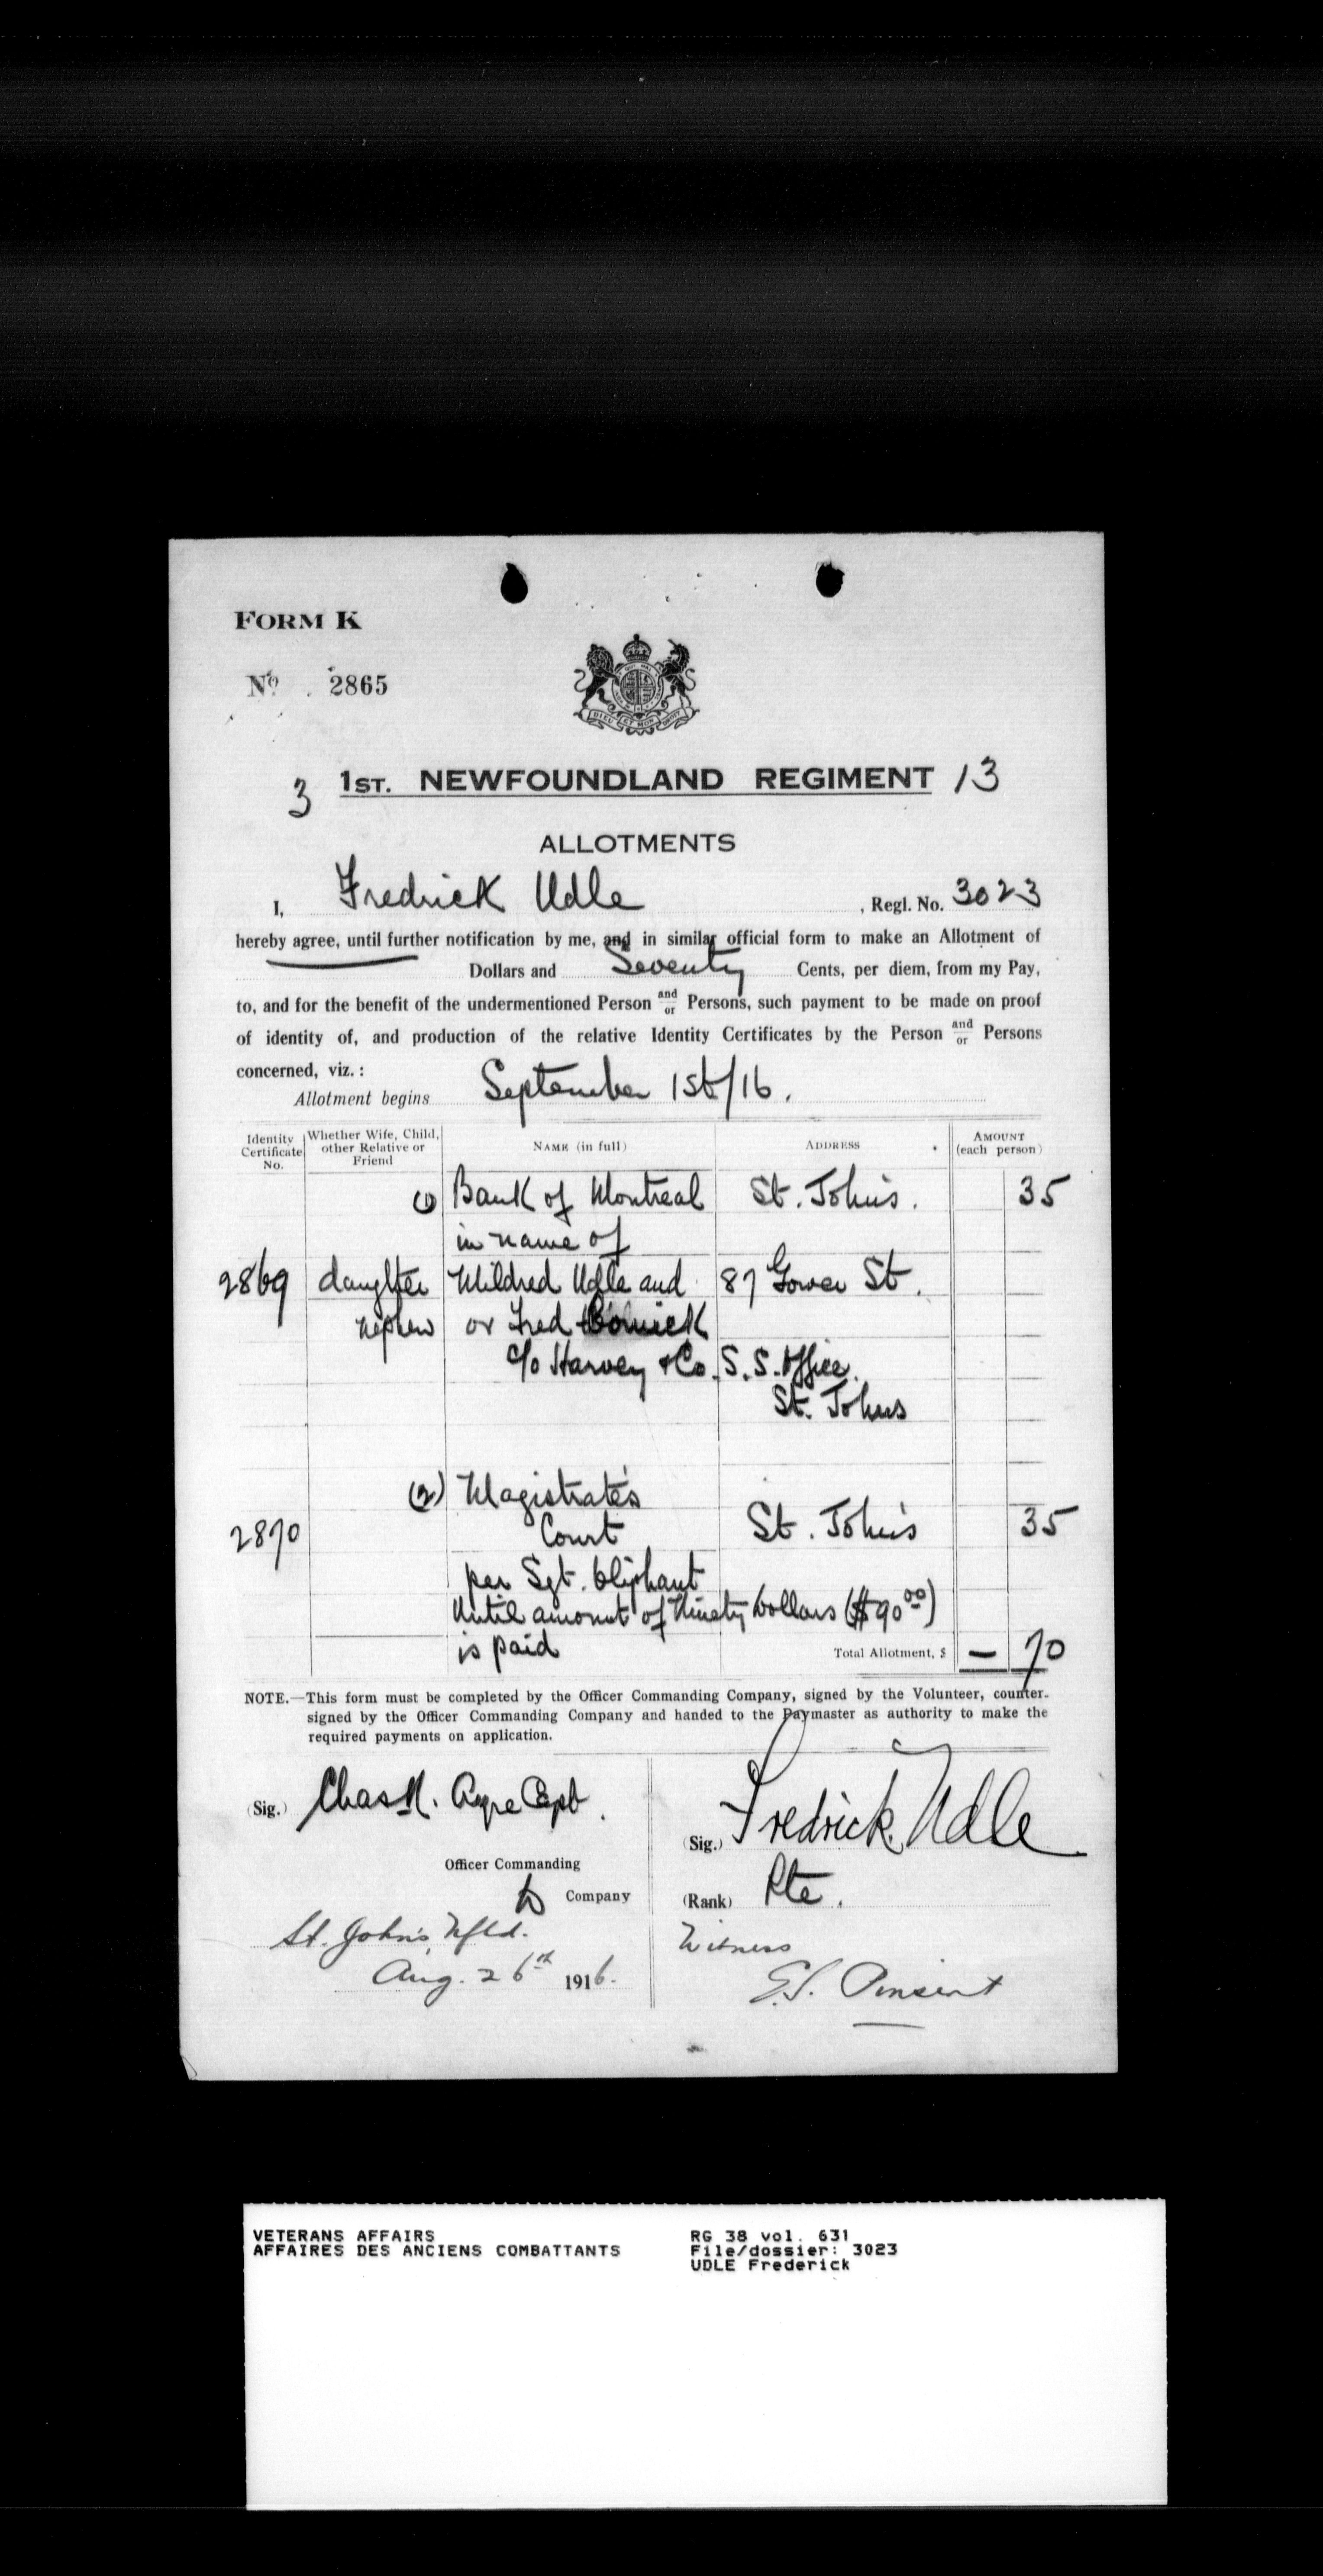 FORM K
No. 2865
DIEU ET MON DROIT
3 1ST. NEWFOUNDLAND REGIMENT 13
ALLOTMENTS
I, Fredrick Udle, Regl. No. 3023
hereby agree, until further notification by me, and in similar official form to make an Allotment of
Dollars and Seventy Cents, per diem, from my Pay,
to, and for the benefit of the undermentioned Person and/or Persons, such payment to be made on proof
of identity of, and production of the relative Identity Certificates by the Person and/or Persons
concerned, viz.:
Allotment begins September 1st/16.
Identity Certificate No. Whether Wife, Child, other Relative or Friend NAME (in full) ADDRESS AMOUNT (each person)
(1) Bank of Montreal St. John's. 35
in name of
2869 daughter Mildred Udle and 87 Gower St.
nephew or Fred
c/o Harvey & Co. S.S. Office.
St. Johns
(2) Magistrate's
2870 Court St. John's 35
per Sgt. Oliphant
Until amount of Ninety Dollars ($90.00)
is paid Total Allotment, $ — 70
NOTE.—This form must be completed by the Officer Commanding Company, signed by the Volunteer, counter-
signed by the Officer Commanding Company and handed to the Paymaster as authority to make the
required payments on application.
(Sig.) Chas. H. Ayre Capt.
Officer Commanding
D Company
St. John's, Nfld.
Aug. 26th 1916.
(Sig.) Fredrick Udle
(Rank) Pte.
Witness
E.S. Pinsent
VETERANS AFFAIRS
AFFAIRES DES ANCIENS COMBATTANTS
RG 38 vol. 631
File/dossier: 3023
UDLE Frederick